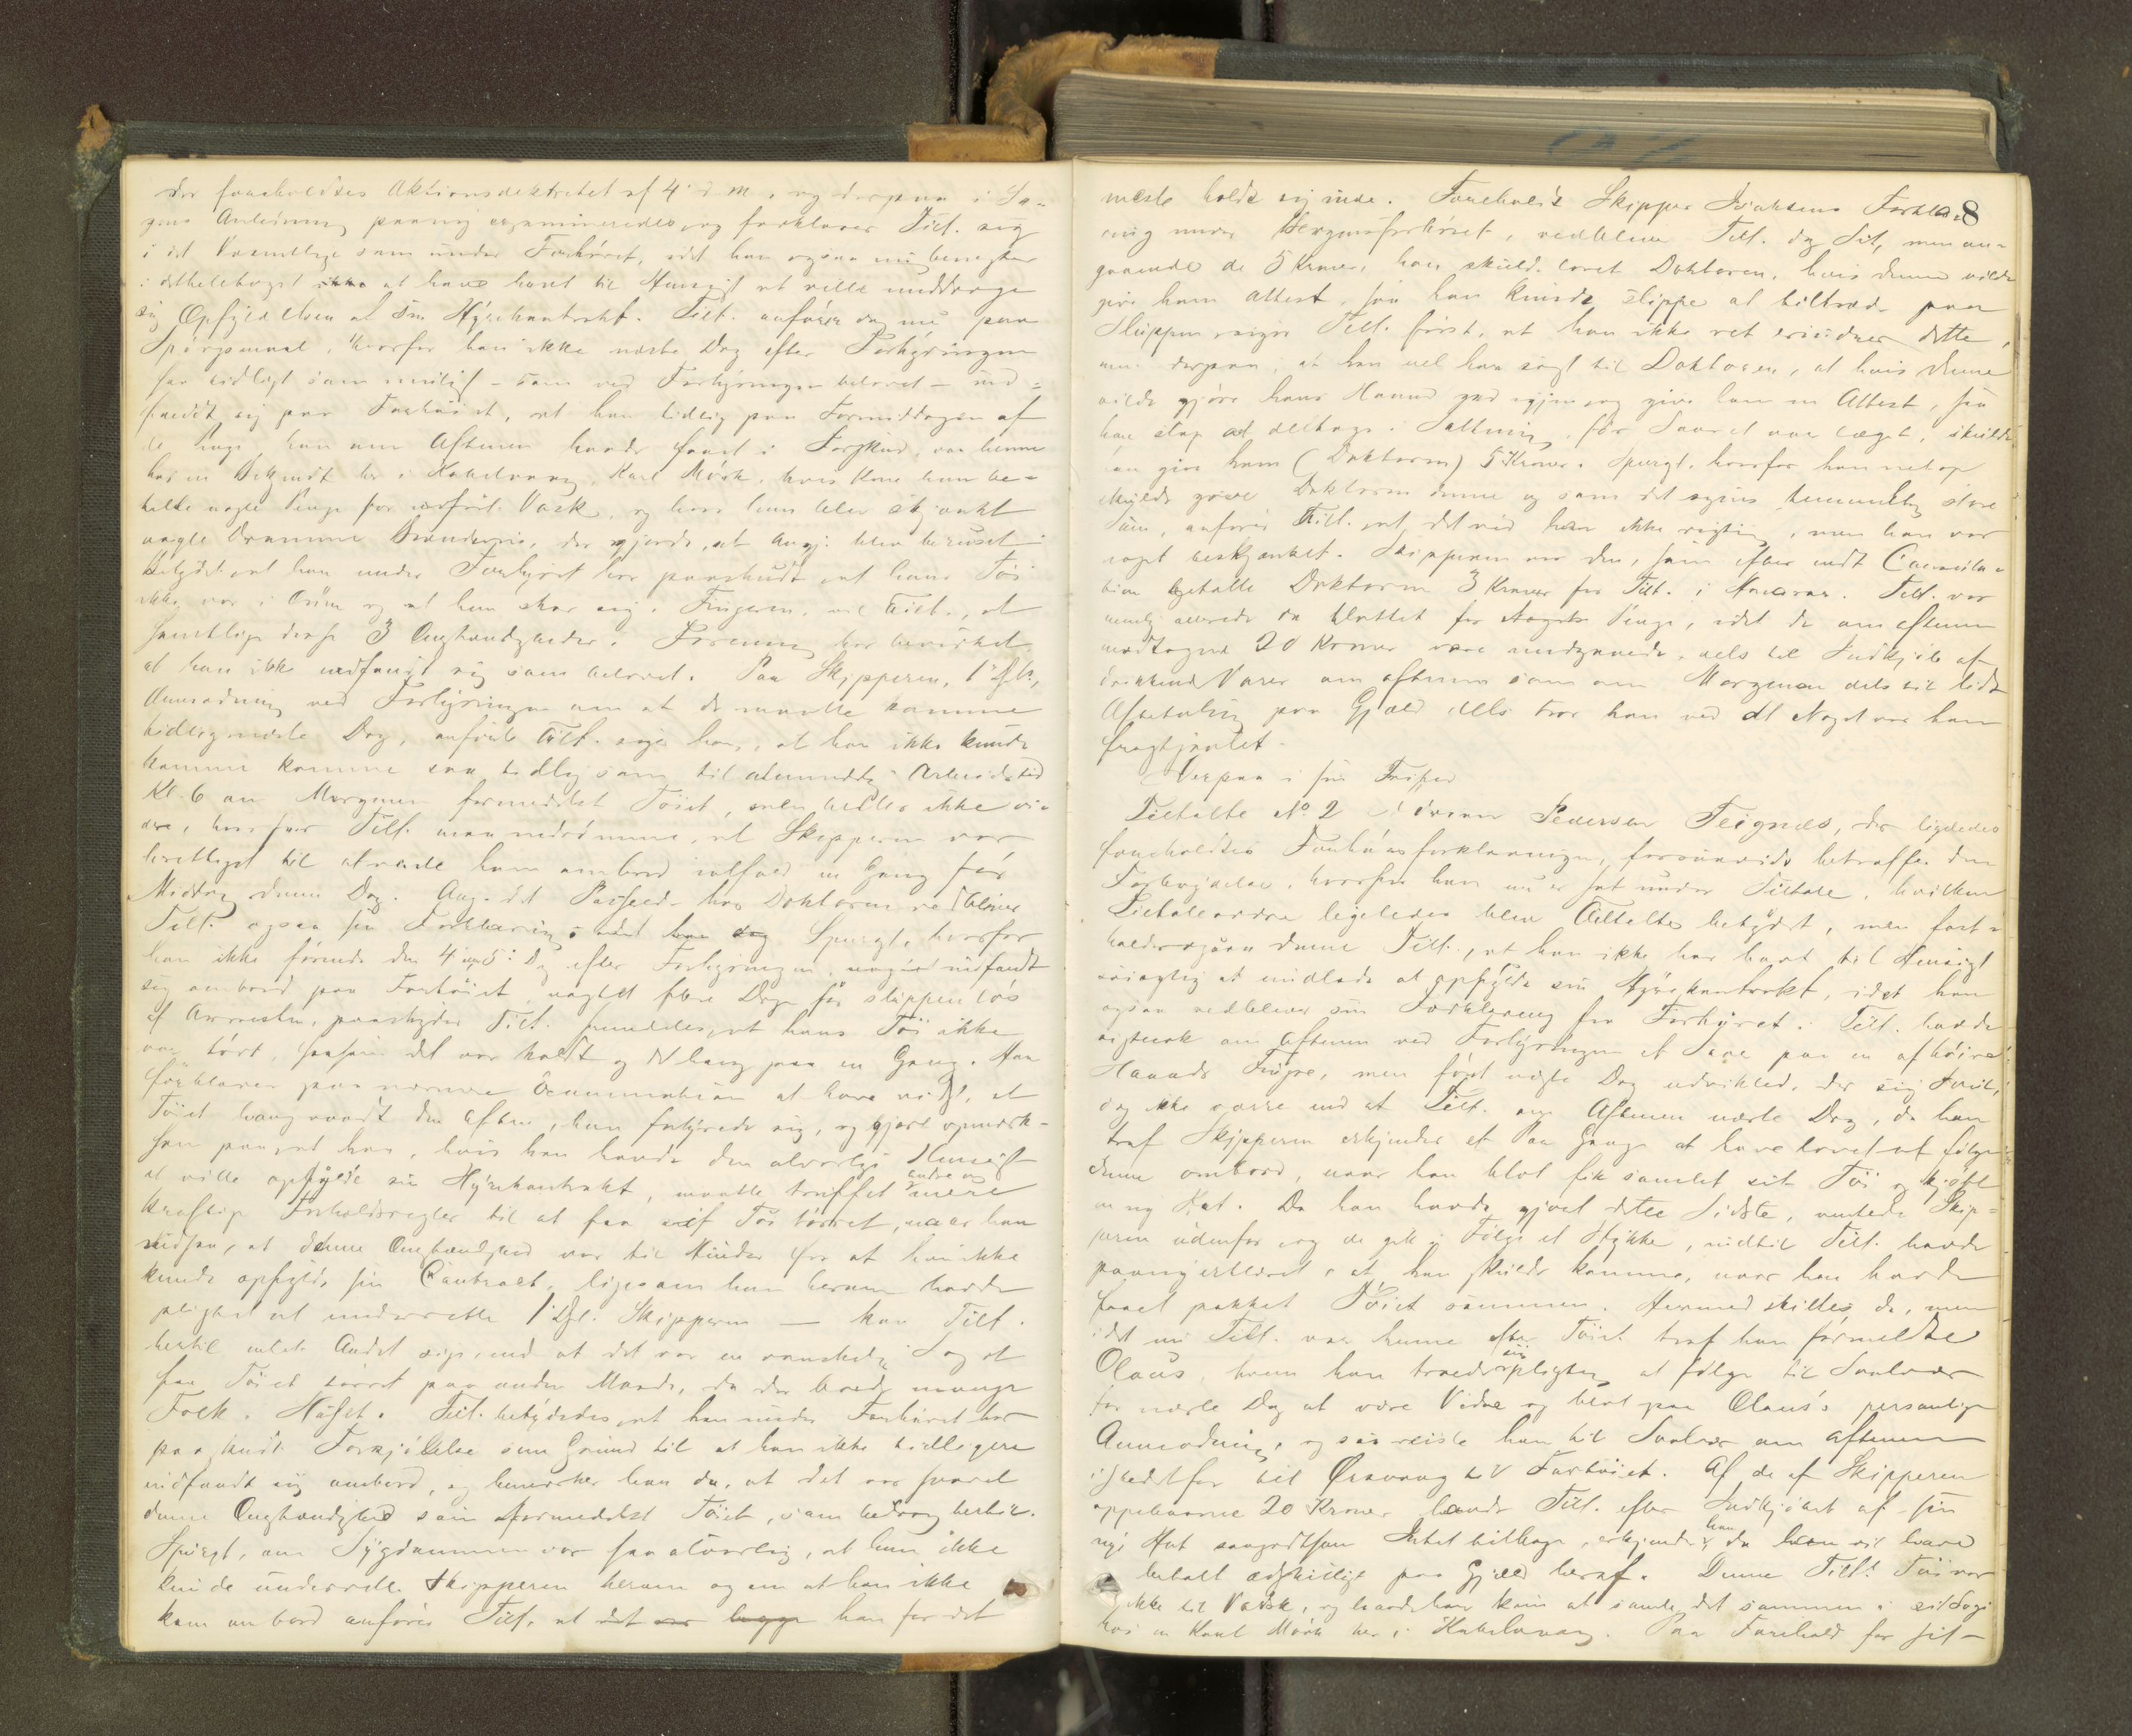 der foreholdtes Aktionsdekretet af 4' d. M. og derpaa i Sa-
gens Anledning paany examineredes, og forklarer Tilt. sig
i det Væsentlige som under Forhöret, idet han ogsaa nu benegter
i det hele taget at have havt til Hensigt at ville unddrage
sig Opfyldelsen af sin Hyrekontrakt. Tilt. anförer dog nu paa
Spörgsmaal, hvorfor han ikke næste Dag efter Forhyringen
saa tidligt som muligt - som ved Forhyringen belovet - ind-
fandt sig paa Fartöiet, at han tidlig paa Formiddagen af
de Penge, han om Aftenen havde faaet i Forskud, var henne
hos en Bekjendt her i Kabelvaag, Karl Mörk, hvis Kone han be-
talte nogle Penge for udfört Vask, og hvor han blev skjænket
nogle Dramme Brændevin, der gjorde, at Ang. blev beruset.
Betydet, at han under Forhöret har paaskudt at hans Töi
ikke var i Orden og at han skar sig i Fingeren, vil Tilt., at
samtlige disse 3 Omstændigheder i Forening har bevirket,
at han ikke indfandt sig som belovet. Paa Skipperen, 1' Dpt.,
Anmodning ved Forhyringen om at de maatte komme
tidlig næste Dag, anförte Tilt. sige han, at han ikke kunde
komme komme saa tidlig som til almindelig Arbeidstid
Kl. 6 om Morgenen formedelst Töiet, men heller ikke vi-
dere, hvorfor Tilt. maa indrömme, at Skipperen var
berettiget til at vente ham ombord ialfald en Gang för
Middag denne Dag. Ang. det Passerede hos Doktoren vedbliver
Tilt. ogsaa sin Forklaring. Spurgt, hvorfor
han ikke förend den 4 og 5' Dag efter Forhyringen indfandt
sig ombord paa Fartöiet, nogle flere Dage för slippen lös
af Arresten, paaskyder Tilt. fremdeles, at hans Töi ikke
var tört, saasom det var koldt og det hang paa en Gang. Han
forklarer paa nærmere Examination at have vidst, at
Töiet hang vaadt den Aften, han forhyrede sig, og gjort opmærk-
som paa, at han, hvis han havde den alvorlige Hensigt
at ville opfylde sin Hyrekontrakt, maatte truffet andre og mere
kraftige Forholdsregler til at faa sit Töi törret, naar han
vidste, at denne Omstændighed var til Hinder for at han ikke
kunde opfylde sin Contract, ligesom han herom havde
pligtet at underrette 1' Dpt. Skipperen — kan Tilt.
hertil intet Andet sige, end at det var en vanskelig Sag at
faa Töiet törret paa anden Maade, da der boede mange
Folk i Huset. Tilt. betydedes, at han under Forhöret har
paaskudt Forkjölelse som Grund til at han ikke tidligere
indfandt sig ombord, og bemærker han da, at det var saavel
denne Omstændighed som formedelst Töiet, som bidrog hertil.
Spurgt, om Sygdommen var saa alvorlig, at han ikke
kunde underrette Skipperen herom og om at han ikke
kom ombord anförer Tilt. at han for det
8
meste holdt sig inde. Foreholdt Skipper Isaksens Forklar-
ing under Sövegnsforhöret, vedbliver Tilt. dog Sit, men an-
gaaende de 5 Kroner, han skulde lovet Doktoren, hvis denne vilde
give ham Attest, saa han kunde slippe at tiltræde paa
Skippen, siger Tilt. först, at han ikke ret erindrer dette,
men derpaa, at han vel har sagt til Doktoren, at hvis denne
vilde gjöre hans Haand god igjen og give ham en Attest, saa
han slap at deltage i Saltning, för Saaret var læget, skulde
han give ham (Doktoren) 5 Kroner. Spurgt, hvorfor han netop
skulde give Doktoren denne og som det synes temmelig store
Sum, anförer Tilt. at, det ved han ikke rigtig, men han var
noget beskjænket. Skipperen var den, som efter endt Consulta-
tion betalte Doktoren 3 Kroner for Tilt. Tilt. var
nemlig allerede da blottet for Penge, idet de om Aftenen
modtagne 20 Kroner vare medgaaede dels til Indkjöb af
drikkende Varer om Aftenen som om Morgenen dels til lidt
Afbetaling paa Gjæld dels tror han ved at Noget var ham
frastjaalet.
Derpaa i sin Frihed
Tiltalte No. 2 Pedersen Teignæs, der ligeledes
foreholdtes Forhörsforklaringen, forsaavidt betræffer den
Forbrydelse, hvorfor han nu er sat under Tiltale, hvilken
Tiltaleordre ligeledes blev Tiltalte betydet, men fast-
holder ogsaa denne Tilt., at han ikke har havt til Hensigt
svigagtig at undlade at opfylde sin Hyrekontrakt, idet han
ogsaa vedbliver sin Forklaring fra Forhöret. Tilt. havde
vistnok om Aftenen ved Forhyringen et Saar paa en af höire
Haands Fingre, men först næste Dag udviklede der sig Verk,
dog ikke værre end at Tilt. om Aftenen næste Dag, da han
traf Skipperen erkjender et Par Gange at have lovet at fölge
denne ombord, naar han blot fik samlet sit Töi og kjöbt
en ny Hat. Da han havde gjort dette Sidste, ventede Skip-
peren udenfor og de gik i Fölge et Stykke, indtil Tilt. havde
paany erklæret, at han skulde komme, naar han havde
faaet pakket Töiet sammen. Hermed skiltes de, men
idet nu Tilt. var henne efter Töiet traf han förmeldte
Olaus, hvem han troede sig pligtig at fölge til Svolvær
for næste Dag at være Vidne og blot paa Olaus's personlige
Anmodning, og saa reiste han til Svolvær om Aftenen
istedetfor til Örsvaag til Fartöiet. Af de af Skipperen
oppebaarne 20 Kroner havde Tilt. efter Indkjöbet af sin
nye Hat saagodtsom Intet tilbage, erkjender han, da han vil have
betalt adskilligt paa Gjæld heraf. Denne Tilt.s Töi var
ikke til Vask, og havde han kun at samle det sammen i sit Logi
hos en Karl Mörk her i Kabelvaag. Paa Forehold for sit-